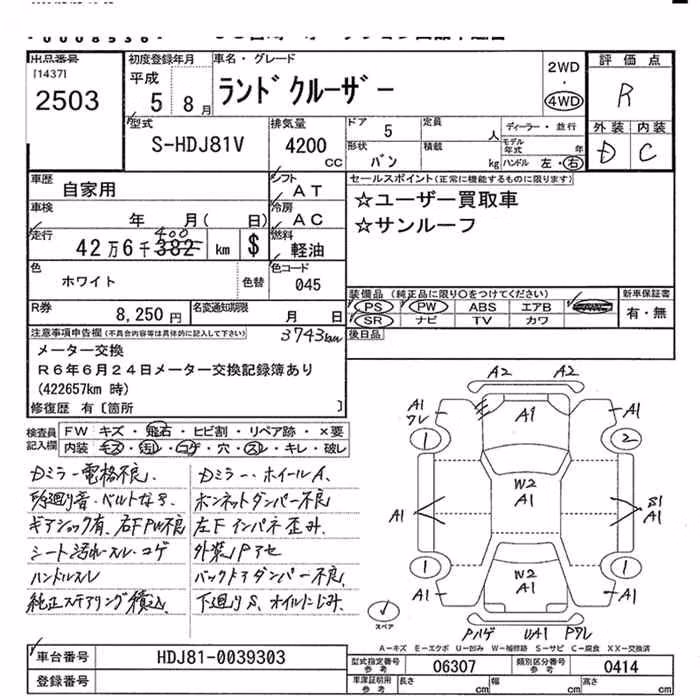 出品番号
[1437]
2503
初度登録年月
平成
5 8月
車名・グレード
ランドクルーザー
2WD
・
4WD
評価点
R
型式
S-HDJ81V
排気量
4200
cc
ドア 5
定員 人
ディーラー・並行
モデル年式 年
形状 バン
積載 kg
ハンドル 左・右
外装 内装
D C
車歴 自家用
シフト AT
車検 年 月( 日)
冷房 AC
走行 42万6千382 400 km $
燃料 軽油
色 ホワイト 色替
色コード 045
セールスポイント(正常に機能するものに限ります)
☆ユーザー買取車
☆サンルーフ
R券 8,250円
名変通知期限 月 日
装備品 (純正品に限り○をつけてください)
PS PW ABS エアB
SR ナビ TV カワ
新車保証書
有・無
後日品
注意事項申告欄(不具合内容等は具体的に記入して下さい)
3743km
メーター交換
R6年6月24日メーター交換記録簿あり
(422657km 時)
修復歴 有〔箇所 〕
検査員記入欄
FW キズ・飛石・ヒビ割・リペア跡・×要
内装 キズ・汚れ・コゲ・穴・スレ・キレ・破レ
Dミラー電格不良、
ギアショック有、右FPW不良
シート汚れ・スレ・コゲ
ハンドルスレ
純正ステアリング積込、
Dミラー、ホイールA、
ボンネットダンパー不良
左Fインパネ歪み、
外装
バックドアダンパー不良、
下廻りS、オイルにじみ、
A2 A2
A1
ワレ
A1
A1
1 2
W2
A1
A1
S1
A1
1 1
W2
A1
A1 A1
スペア
Pハゲ UA1 Pワレ
A－キズ E－エクボ U－凹み W－補修跡 S－サビ C－腐食 XX－交換済
車台番号 HDJ81-0039303
登録番号
型式指定番号 参考 06307
類別区分番号 参考 0414
車庫証明用 参考 長さ cm 幅 cm 高さ cm